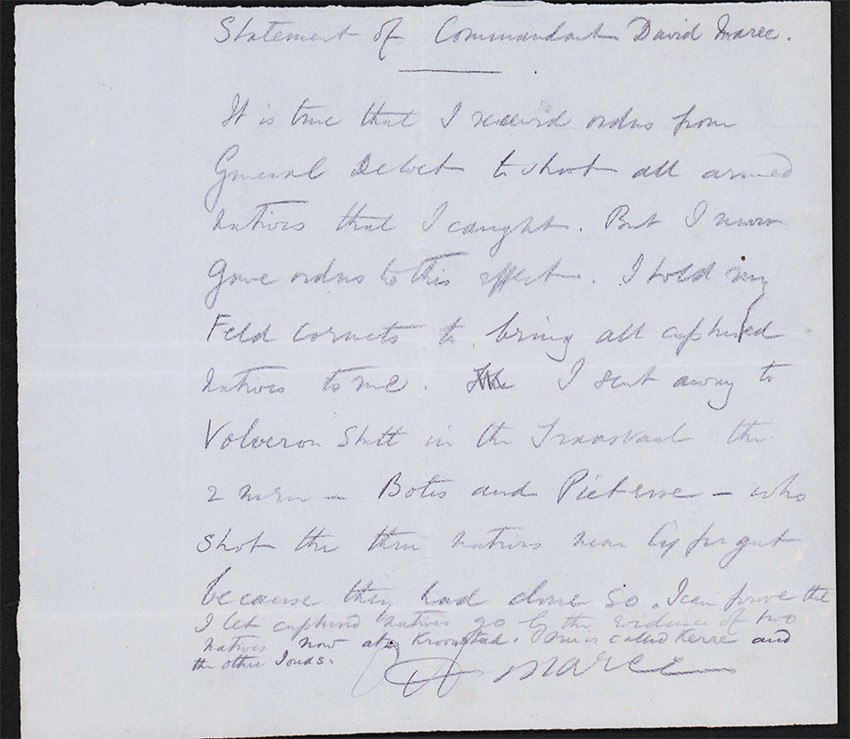 Statement of Commandant David Maree.
It is true that I received orders from
General Dewet to shoot all armed
natives that I caught. But I never
Gave orders to this effect. I told my
Feld cornets to bring all captured
natives to me. I sent away to
in the Transvaal the
2 men - Botes and Pieterse - who
shot the three natives near
because they had done so. I can prove that
I let captured natives go by the evidence of two
natives now at Kroonstad. One is called and
the other Jonas.
D Maree